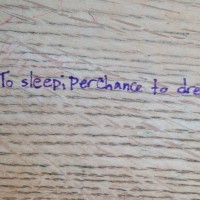 To sleep; Perchance to dre